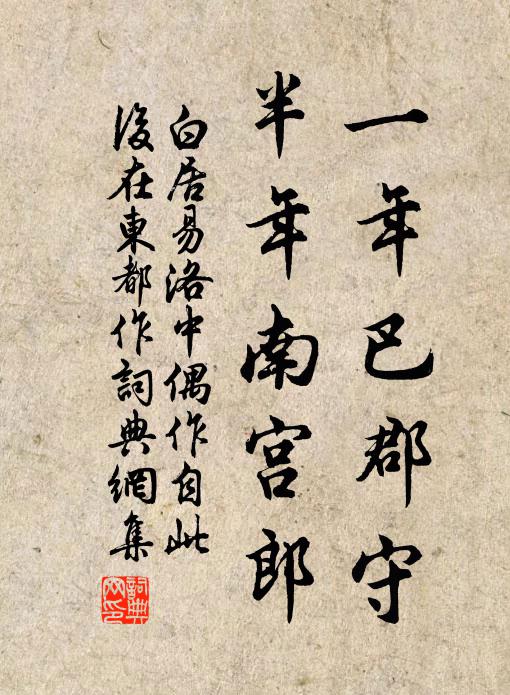 一年巴郡守
半年南宮郎
白居易洛中偶作自此
後在東都作詞典網集
詞典网印